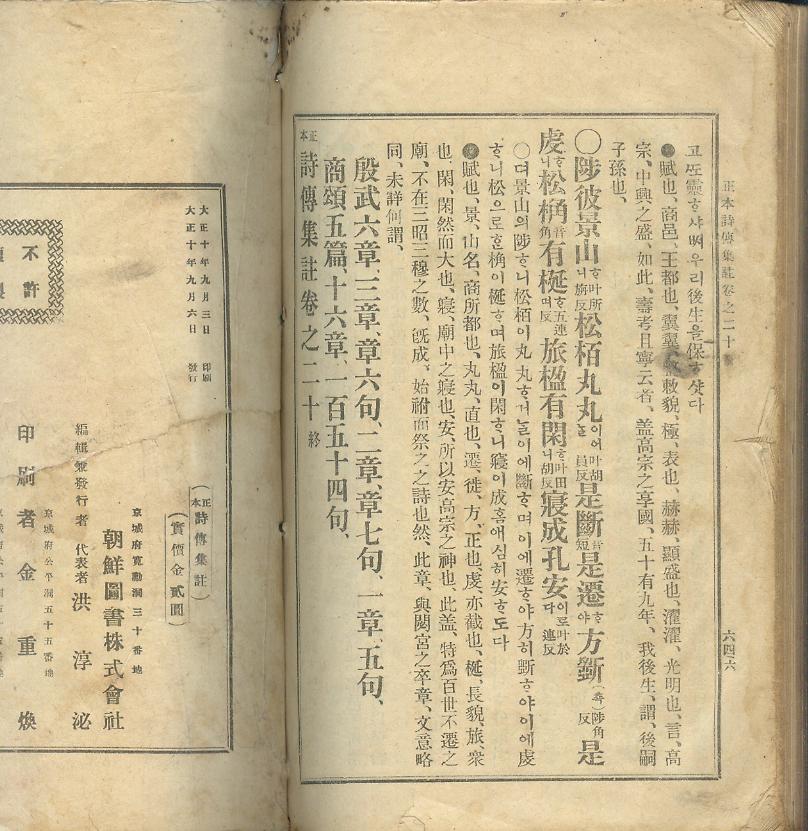 正本詩傳集註卷之二十
六四六
고또靈ᄒᆞ샤ᄡᅥ우리後生을保ᄒᆞ샷다
●賦也、商邑、王都也、翼翼、敕貌、極、表也、赫赫、顯盛也、濯濯、光明也、言、高
宗、中興之盛、如此、壽考且寧云者、盖高宗之享國、五十有九年、我後生、謂、後嗣
子孫也、
〇陟彼景山ᄒᆞ니叶所旃反松栢丸丸이어ᄂᆞᆯ叶胡員反是斷音短是遷ᄒᆞ야方斲(斵)陟角反是
虔ᄒᆞ니松桷音角有梴ᄒᆞ며五連反旅楹有閑ᄒᆞ니叶田胡反寢成孔安이로다叶於連反
〇뎌景山의陟ᄒᆞ니松栢이丸丸ᄒᆞ거ᄂᆞᆯ이에斷ᄒᆞ며이에遷ᄒᆞ야方히斲ᄒᆞ야이에虔
ᄒᆞ니松으로ᄒᆞᆫ桷이梴ᄒᆞ며旅楹이閑ᄒᆞ니寢이成홈애심히安ᄒᆞ도다
●賦也、景、山名、商所都也、丸丸、直也、遷、徙、方、正也、虔、亦截也、梴、長貌、旅、衆
也、閑、閑然而大也、寢、廟中之寢也、安、所以安高宗之神也、此盖、特爲百世不遷之
廟、不在三昭三穆之數、旣成、始祔而祭之之詩也、然、此章、與閟宮之卒章、文意略
同、未詳何謂、
殷武六章、三章、章六句、二章、章七句、一章、五句、
商頌五篇、十六章、一百五十四句、
正本詩傳集註卷之二十終
大正十年九月三日 印刷
大正十年九月六日 發行
不許
(正本詩傳集註)
(實價金貳圓)
京城府寬勳洞三十番地
朝鮮圖書株式會社
編輯兼發行者 代表者 洪淳泌
京城府公平洞五十五番地
印刷者 金重煥
京城府公平洞五十